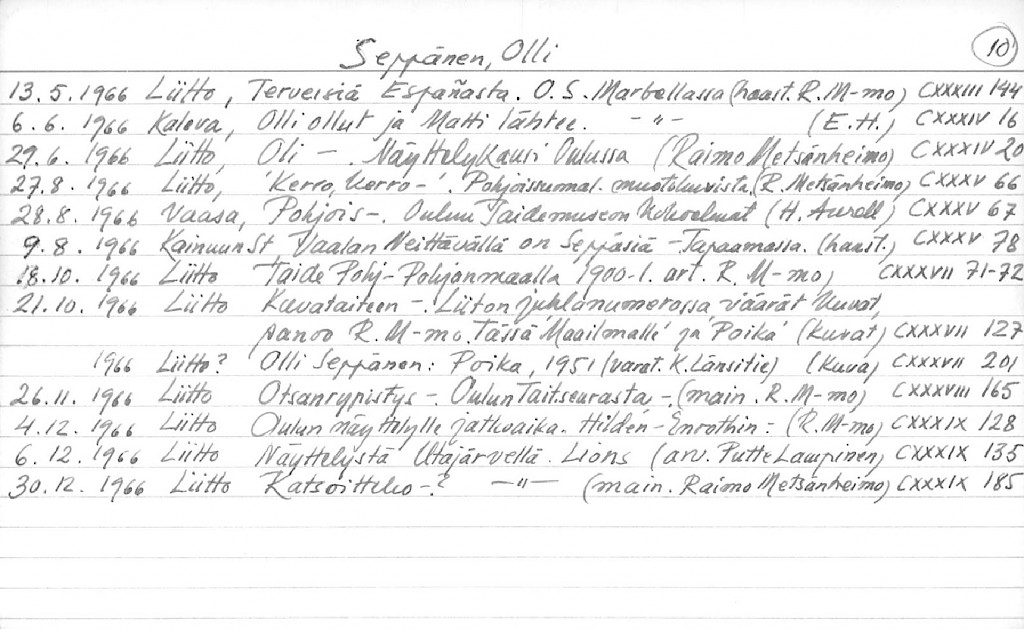 Seppänen, Olli 10
13.5.1966 Liitto, Terveisiä Españasta. O.S. Marbellassa (haast. R.M-mo) CXXXIII 144
6.6. 1966 Kaleva, Olli ollut ja Matti lähtee. -"- (E.H.) CXXXIV 16
29.6. 1966 Liitto, Oli - . Näyttelykausi Oulussa (Raimo Metsänheimo) CXXXIV 20
27.8. 1966 Liitto, 'Kerro, kerro-'. Pohjoissuomal. muotokuvista, (R. Metsänheimo) CXXXV 66
28.8. 1966 Vaasa, Pohjois-. Oulun Taidemuseon kokoelmat (H. Aurell) CXXXV 67
9.8. 1966 KainuunSt Vaalan Neittävällä on Seppäsiä - Tapaamassa. (haast.) CXXXV 78
18.10. 1966 Liitto Taide Pohj-Pohjanmaalla 1900-l. art. R. M-mo) CXXXVII 71-72
21.10. 1966 Liitto Kuvataiteen -. Liiton juhlanumerossa väärät kuvat,
sanoo R.M-mo. Tässä 'Maailmalle' ja 'Poika' (kuvat) CXXXVII 127
1966 Liitto? Olli Seppänen: Poika, 1951 (varat. K. Länsitie) (kuva) CXXXVII 201
26.11. 1966 Liitto Otsanrypistys -. Oulun Taitseurasta -. (main. R.M-mo) CXXXVIII 165
4.12. 1966 Liitto Oulun näyttelylle jatkoaika. Hildén-Enrothin: (R.M-mo) CXXXIX 128
6.12. 1966 Liitto Näyttelystä Utajärvellä. Lions (arv. Putte Lampinen) CXXXIX 135
30.12. 1966 Liitto Katsoitteko -? -"- (main. Raimo Metsänheimo) CXXXIX 185